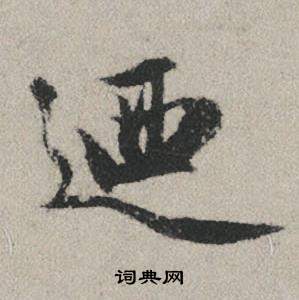 迺
词典网